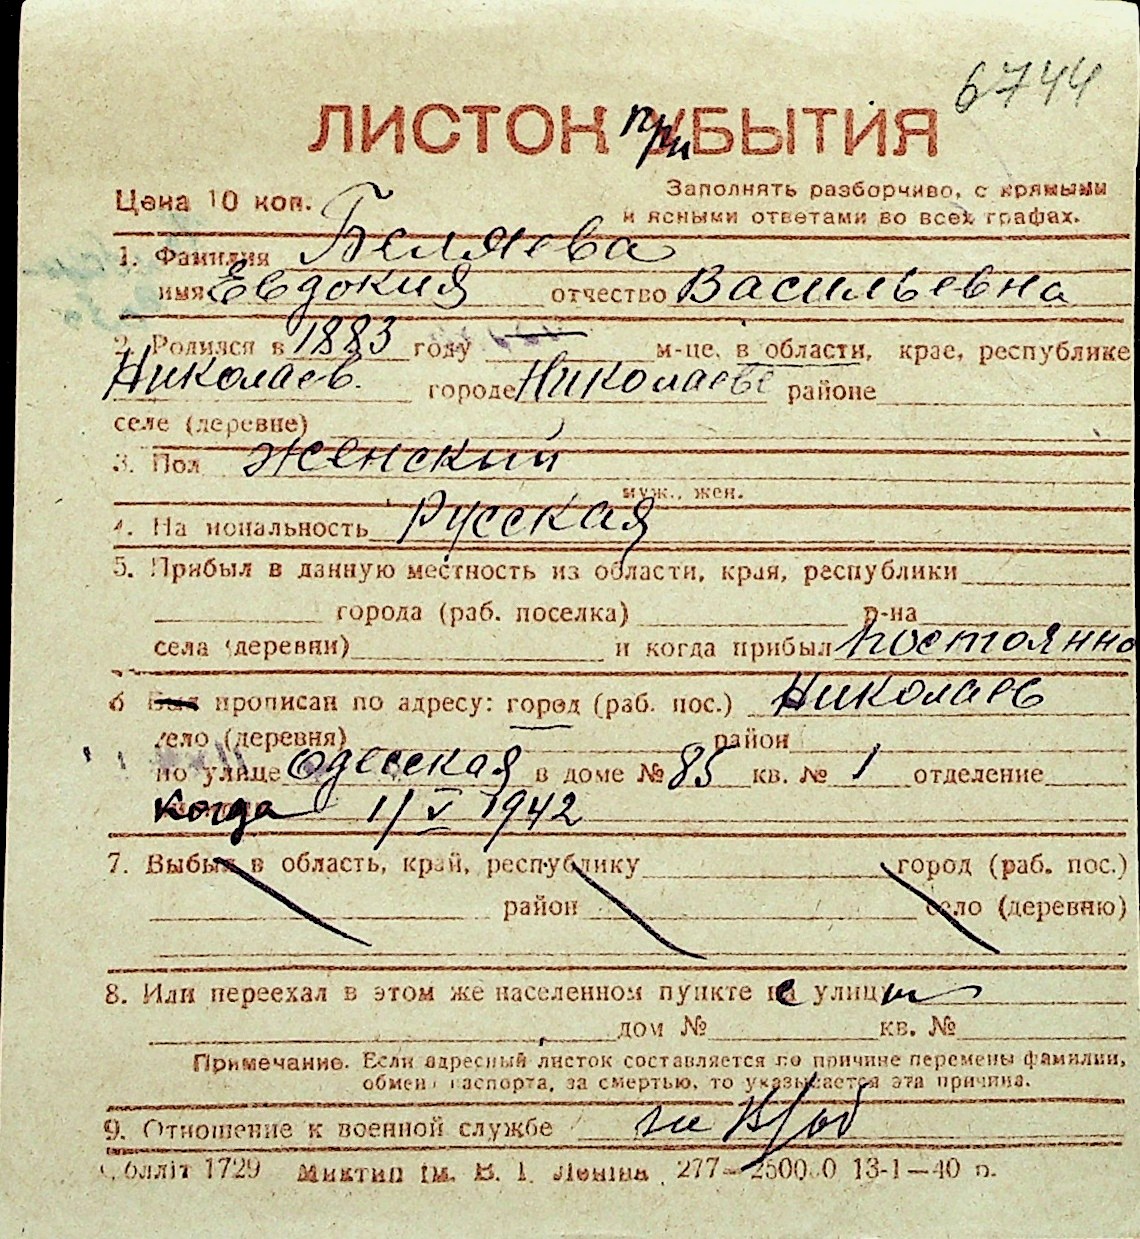 6744
ЛИСТОК приБЫТИЯ
Цена 10 коп.
Заполнять разборчиво, с прямыми
и ясными ответами во всех графах.
1. Фамилия Беляева
имя Евдокия отчество Васильевна
2. Родился в 1883 году — м-це, в области, крае, республике
Николаев. городе Николаеве районе
селе (деревне)
3. Пол женский
муж., жен.
4. Национальность Русская
5. Прибыл в данную местность из области, края, республики
города (раб. поселка) р-на
села (деревни) и когда прибыл постоянно
6 Был прописан по адресу: город (раб. пос.) Николаев
село (деревня) район
по улице Одесская в доме № 85 кв. № 1 отделение
когда 1/V 1942
7. Выбыл в область, край, республику город (раб. пос.)
район село (деревню)
8. Или переехал в этом же населенном пункте с улицы
дом № кв. №
Примечание. Если адресный листок составляется по причине перемены фамилии,
обмена паспорта, за смертью, то указывается эта причина.
9. Отношение к военной службе не в/об
Облліт 1729 Миктип ім. В. І. Леніна 277— 13-1—40 п.